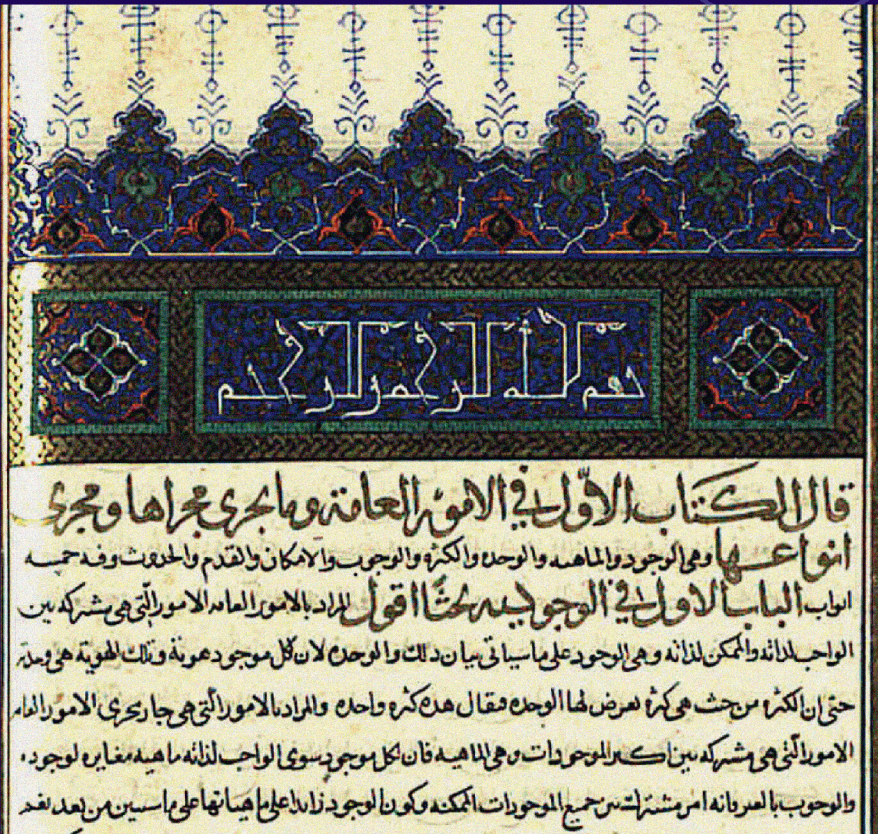 بسم الله الرحمن الرحيم
قال الكتاب الأوّل في الامور العامة وما يجرى مجراها ومجرى
انواعها وهي الوجود والماهيه والوحده والكثره والوجوب والامكان والقدم والحدوث وفيه خمسه
ابواب الباب الاول في الوجود وفيه بحثا اقول المراد بالامور العامه الامور الّتي هي مشتركه بين
الواجب لذاته والممكن لذاته وهي الوجود على ما سياتي بيان ذلك والوحده لان كل موجود هوية وتلك الهوية هي وحدته
حتى ان الكثره من حيث هي كثره تعرض لها الوحده فيقال هذه كثره واحده والمراد بالامور الّتي هي جاريه مجرى الامور العامه
الامور الّتي هي مشتركه بين اكثر الموجودات وهي الماهيه فان لكل موجود سوى الواجب لذاته ماهيه مغايره لوجوده
والوجوب بالغير فانه امر مشترك بين جميع الموجودات الممكنه وكون الوجود زايدا على ماهياتها على ما سيبين من بعد